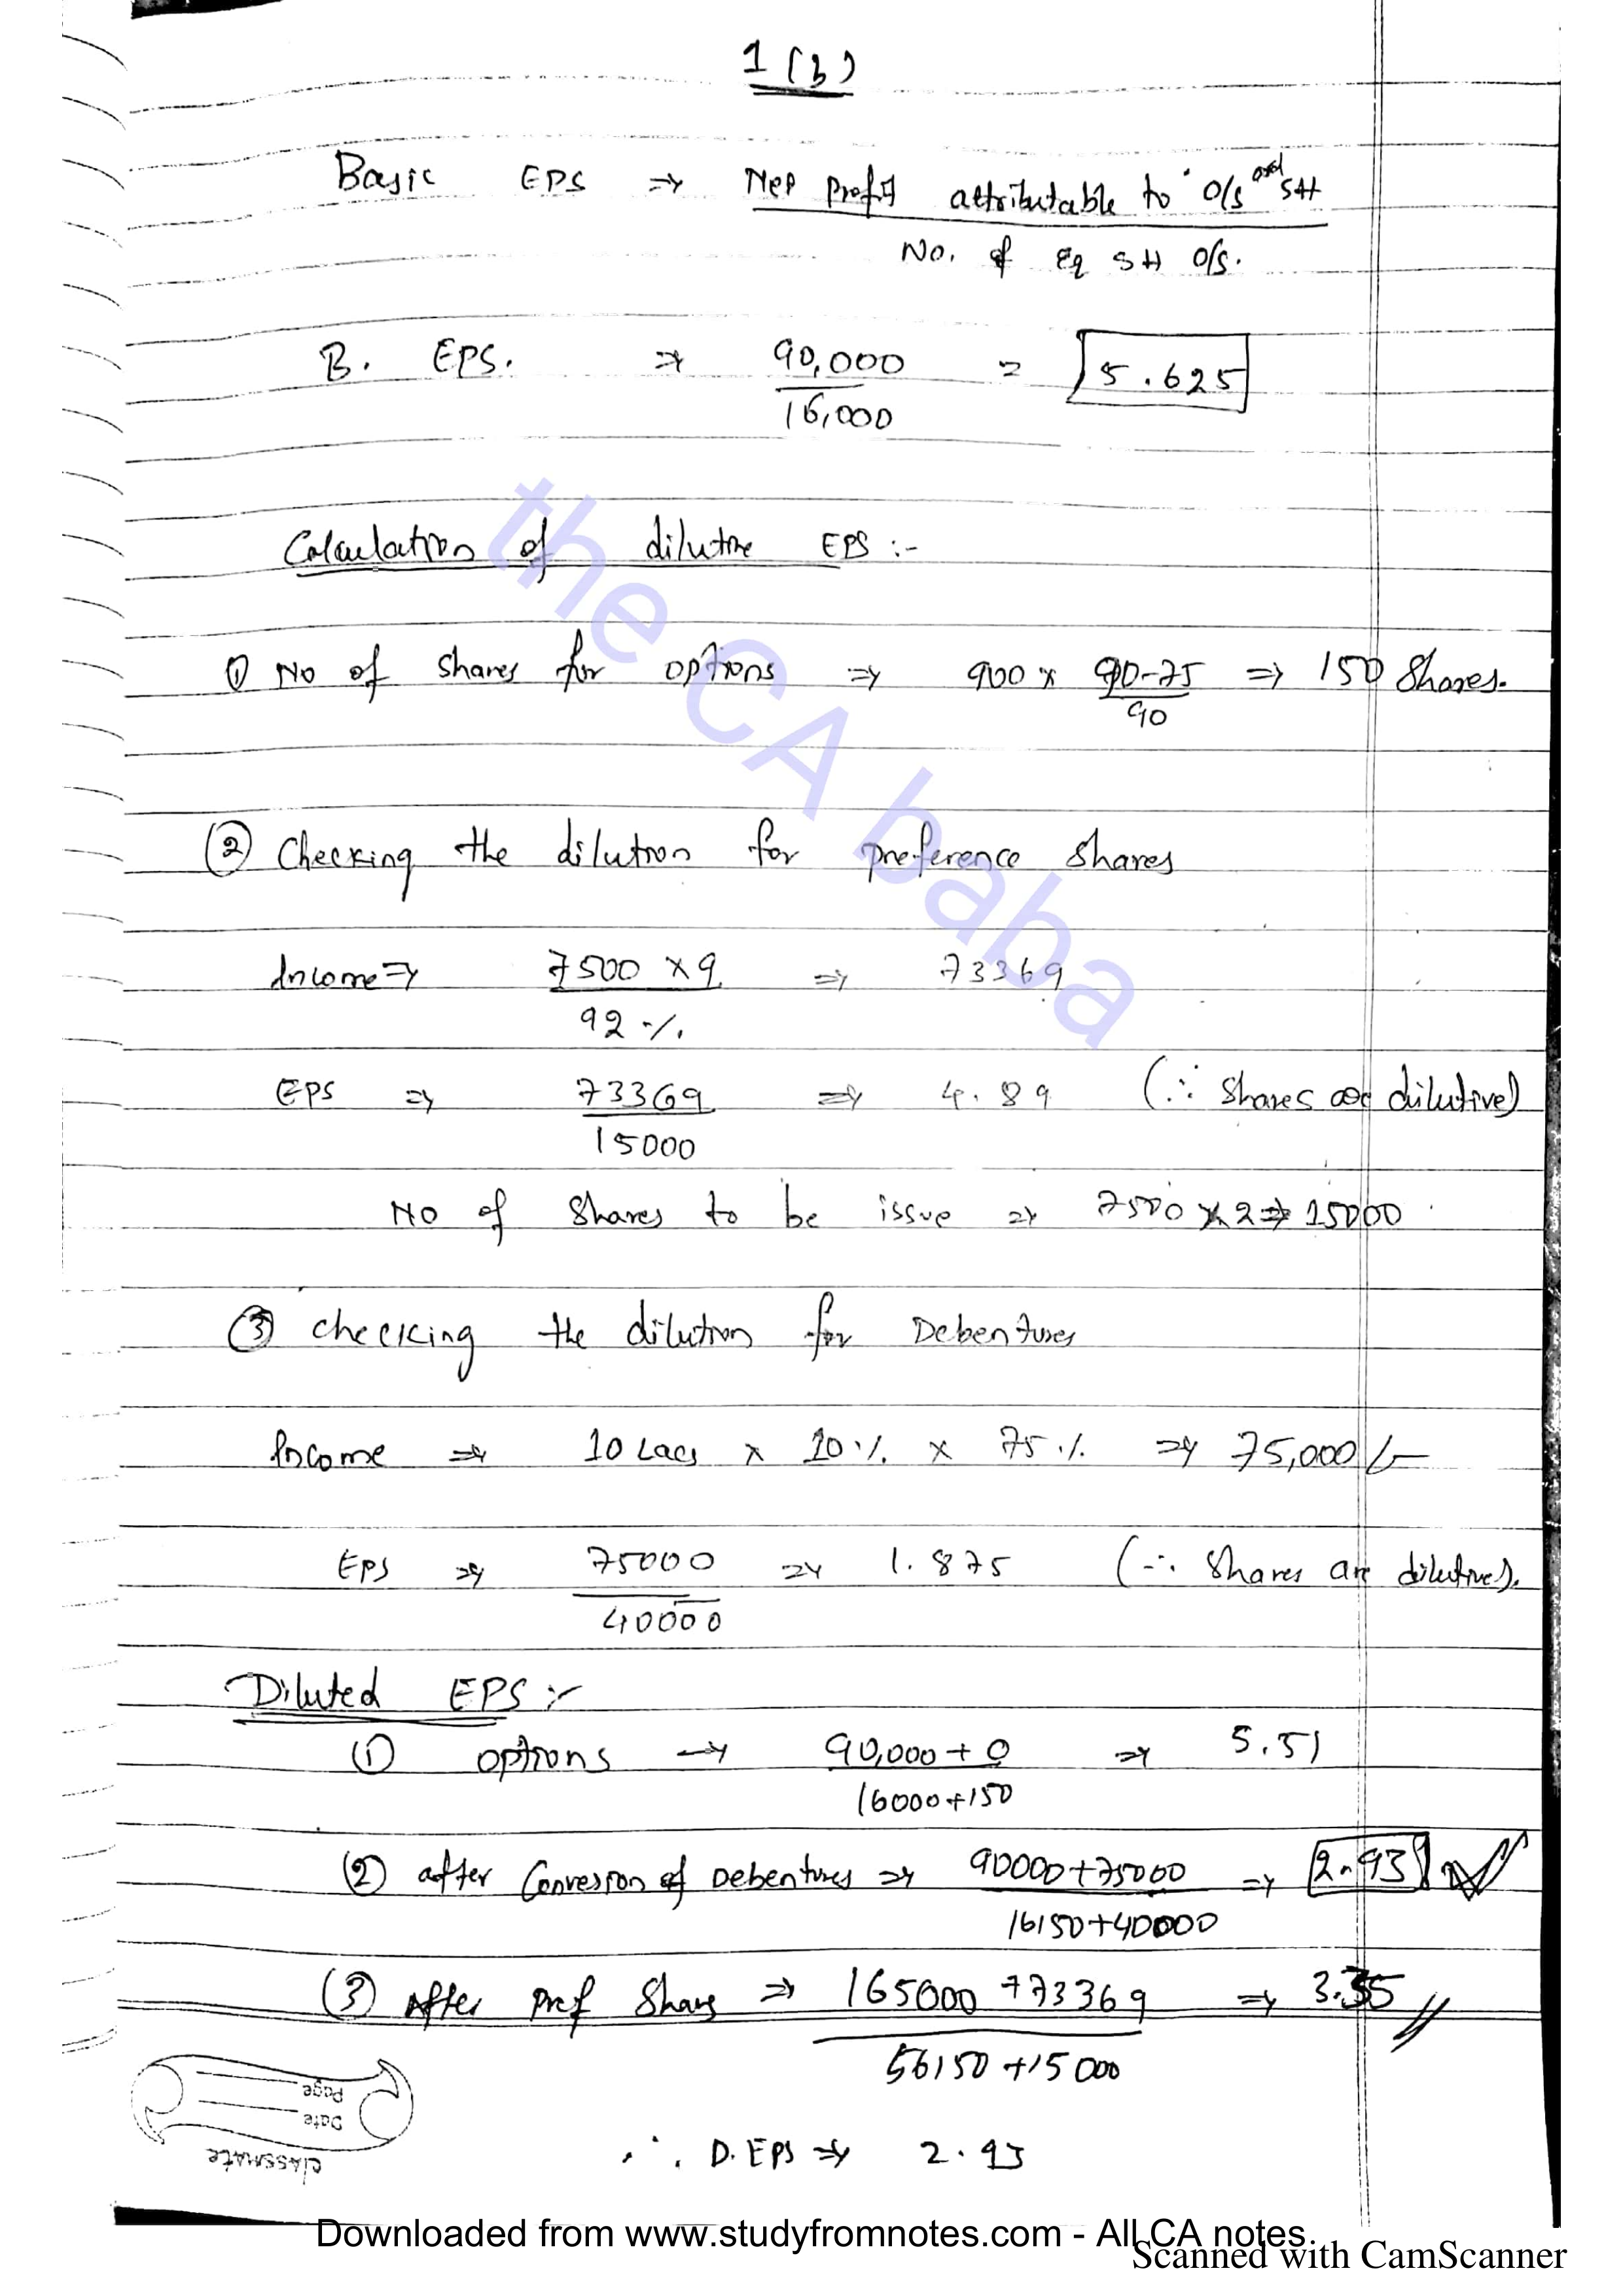 1 (b)
Basic EPS ⇒ Net profit attributable to O/s SH
No. of Eq SH O/s.
B. EPS. ⇒ 90,000 = 5.625
16,000
Calculation of dilutive EPS :-
① No of shares for options ⇒ 900 x 90-75 ⇒ 150 Shares.
90
② Checking the dilution for preference shares
Income ⇒ 7500 x 9 ⇒ 73369
92 %
EPS ⇒ 73369 ⇒ 4.89 (∵ Shares are dilutive)
15000
No of Shares to be issue ⇒ 7500 x 2 ⇒ 15000
③ Checking the dilution for Debentures
Income ⇒ 10 Lacs x 10 % x 75 % ⇒ 75,000/-
EPS ⇒ 75000 ⇒ 1.875 (∵ Shares are dilutive).
40000
Diluted EPS :-
① options → 90,000 + 0 ⇒ 5.51
16000+150
② after Conversion of Debentures ⇒ 90000+75000 ⇒ 2.93
16150+40000
③ After Pref Share ⇒ 165000 +73369 ⇒ 3.35
56150 +15000
∴ D.EPS ⇒ 2.93
the CA baba
classmate
Date
Page
Downloaded from www.studyfromnotes.com - All CA notes
Scanned with CamScanner